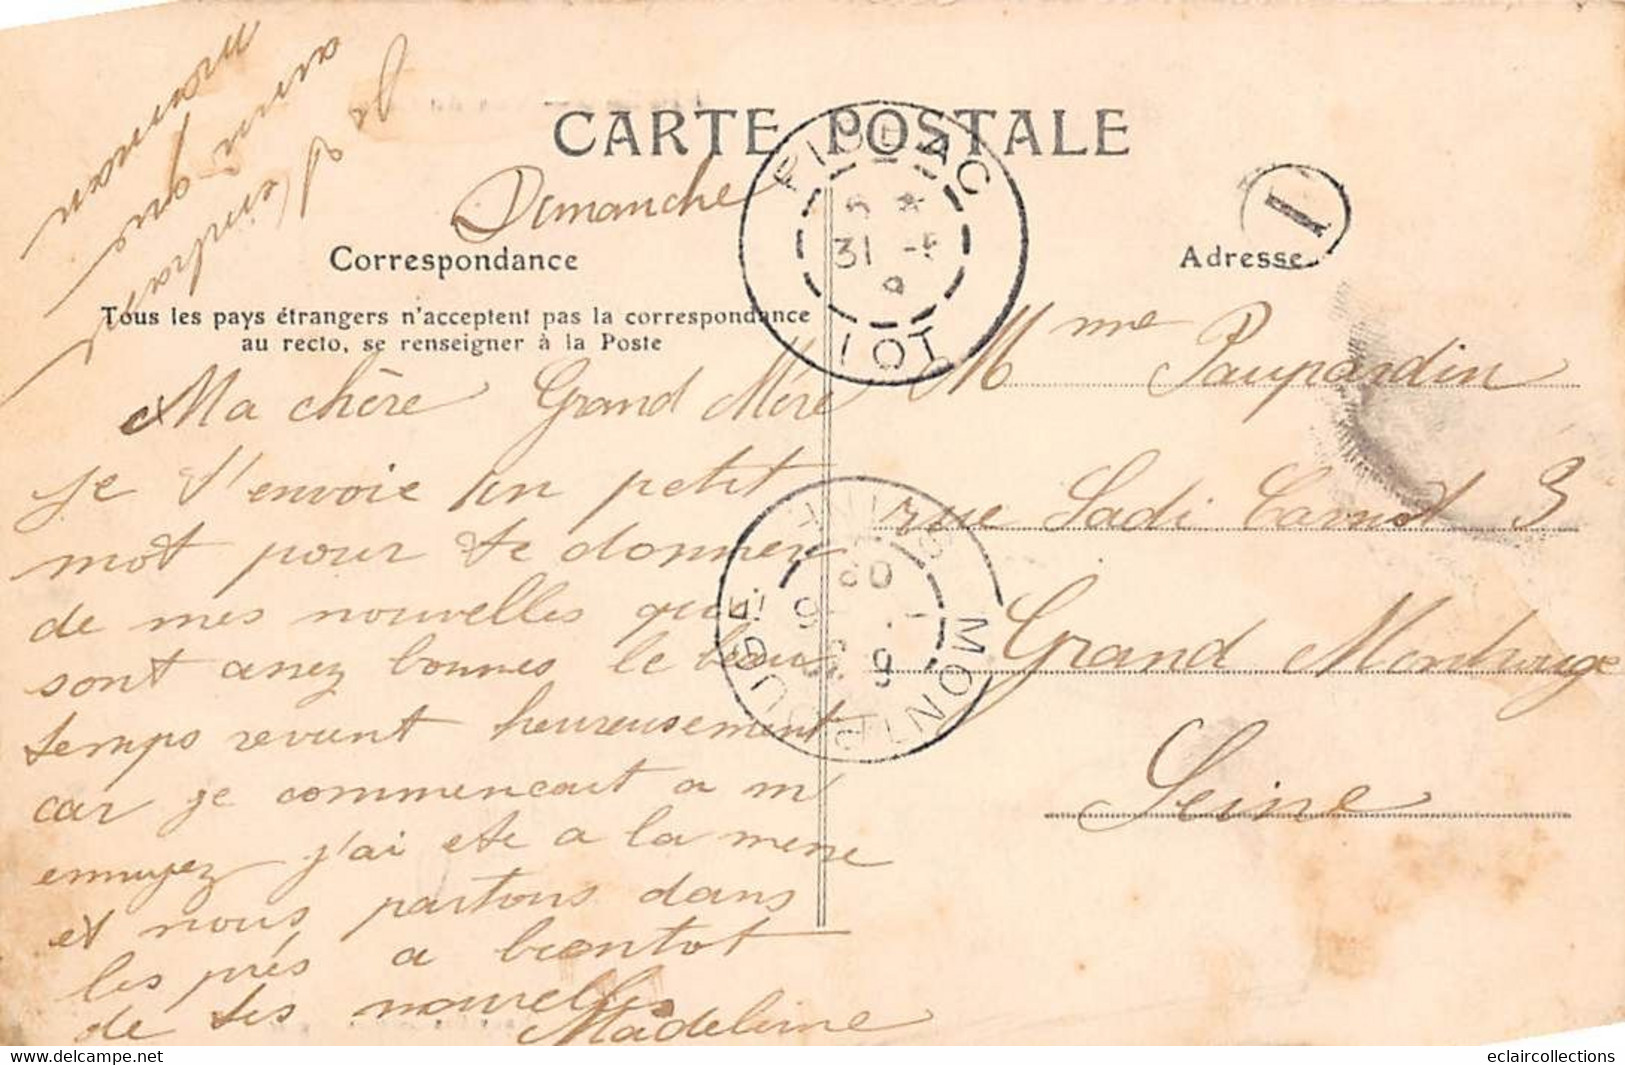 CARTE POSTALE
Dimanche
Correspondance
Adresse
Tous les pays étrangers n'acceptent pas la correspondance
au recto, se renseigner à la Poste
FIGEAC
31 -5
9
LOT
I
Ma chère Grand Mère
je t'envoie un petit
mot pour te donner
de mes nouvelles qui
sont assez bonnes le beau
temps revient heureusement
car je commencait a m'
ennuyez j'ai ete a la mene
et nous partons dans
les prés a bientot
de tes nouvelles
Madeleine
maman
Mme Paupardin
rue Sadi Carnot 3
Grand Montrouge
Seine
MONTROUGE
SEINE
09
eclaircollections